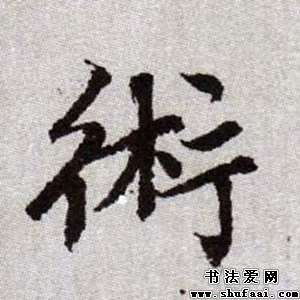 術
书法爱网
www.shufaai.com